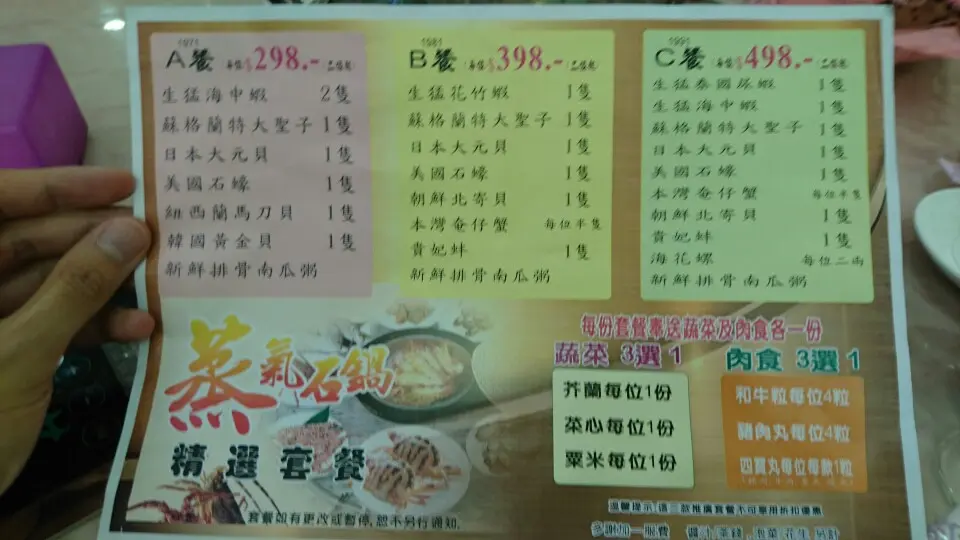 1971
A餐 每位$298.-
生猛海中蝦 2隻
蘇格蘭特大聖子 1隻
日本大元貝 1隻
美國石蠔 1隻
紐西蘭馬刀貝 1隻
韓國黃金貝 1隻
新鮮排骨南瓜粥
1981
B餐 每位$398.-
生猛花竹蝦 1隻
蘇格蘭特大聖子 1隻
日本大元貝 1隻
美國石蠔 1隻
朝鮮北寄貝 1隻
本灣奄仔蟹 每位半隻
貴妃蚌 1隻
新鮮排骨南瓜粥
1991
C餐 每位$498.-
生猛泰國尿蝦 1隻
生猛海中蝦 1隻
蘇格蘭特大聖子 1隻
日本大元貝 1隻
美國石蠔 1隻
本灣奄仔蟹 每位半隻
朝鮮北寄貝 1隻
貴妃蚌 1隻
海花螺 每位二両
新鮮排骨南瓜粥
蒸氣石鍋
精選套餐
套餐如有更改或暫停,恕不另行通知.
每份套餐專送蔬菜及肉食各一份
蔬菜 3選1
芥蘭每位1份
菜心每位1份
粟米每位1份
肉食 3選1
和牛粒每位4粒
豬肉丸每位4粒
四寶丸每位每款1粒
溫馨提示:這三款推廣套餐不可享用折扣優惠
多謝加一服費 醬汁.茶錢.泡菜.花生.另計